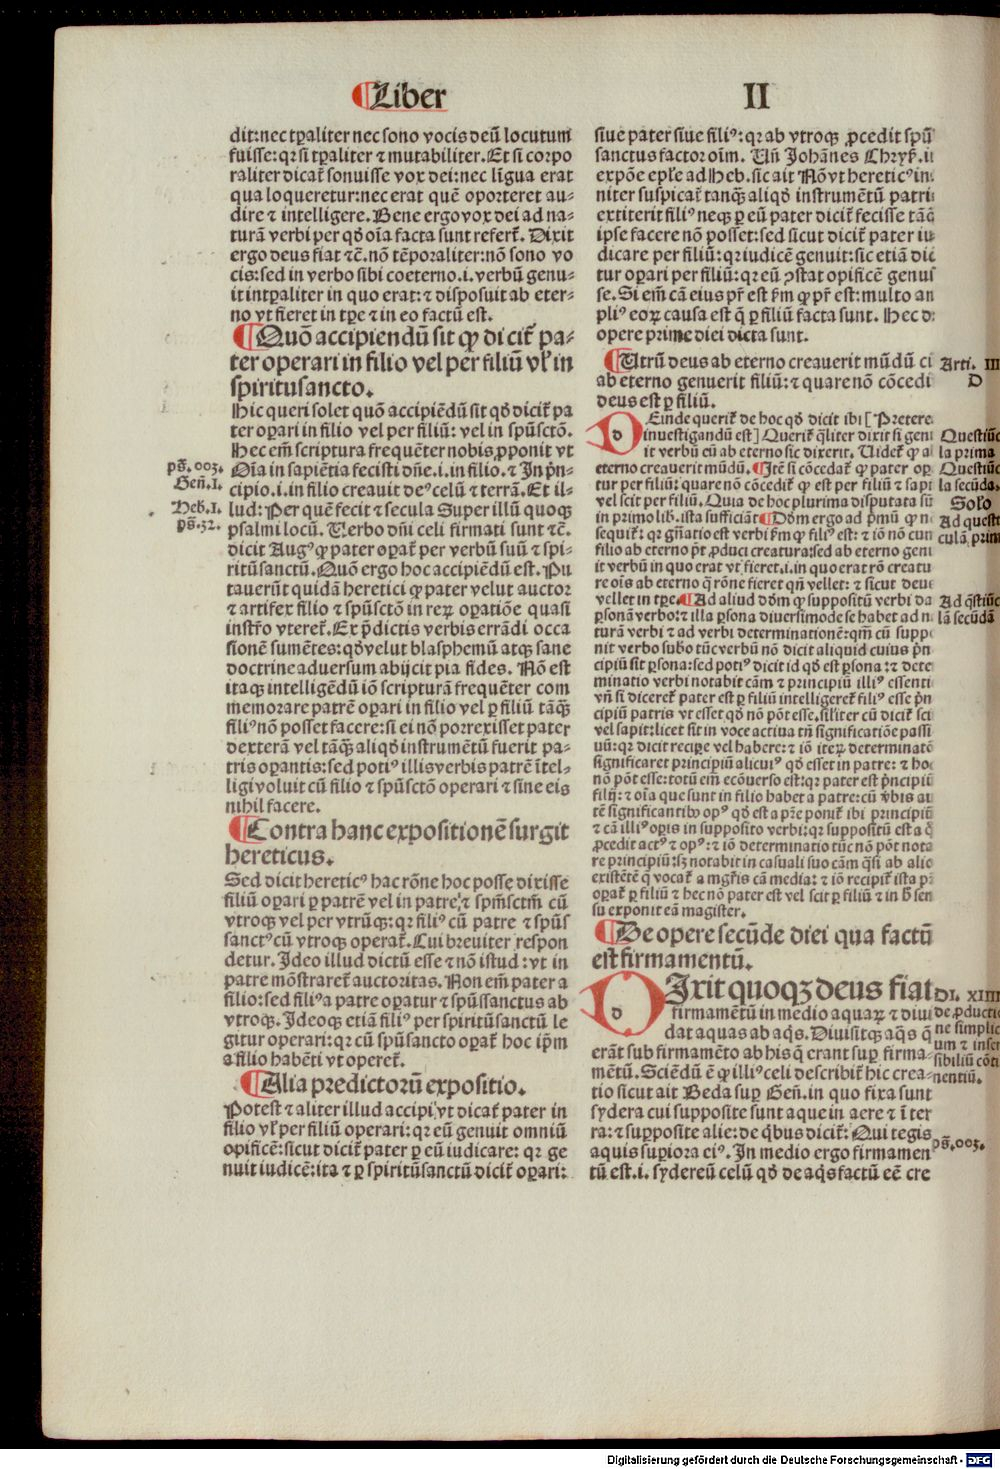 ¶Liber
II
dit:nec tꝑaliter nec sono vocis deū locutum
fuisse:qꝛ si tꝑaliter ⁊ mutabiliter. Et si corpo
raliter dicat̄ sonuisse vox dei:nec līgua erat
qua loqueretur:nec erat quē oporteret au-
dire ⁊ intelligere. Bene ergo vox dei ad na-
turā verbi per qd̄ oīa facta sunt refert̄. Dixit
ergo deus fiat ⁊c̄. nō tēporaliter:nō sono vo
cis:sed in verbo sibi coeterno.i.verbū genu-
it intꝑaliter in quo erat:⁊ disposuit ab eter-
no vt fieret in tꝑe ⁊ in eo factū est.
¶Quō accipiendū sit ꝙ dicit̄ pa-
ter operari in filio vel per filiū vl̓ in
spiritusancto.
Hic queri solet quō accipiēdū sit qd̄ dicit̄ pa
ter oꝑari in filio vel per filiū: vel in spūsctō.
Hec em̄ scriptura frequēter nobis ꝓponit vt
ps̄. 003.
Oīa in sapiētia fecisti dn̄e.i.in filio. ⁊ In pn̄-
Gen̄.I.
cipio.i.in filio creauit deꝰ celū ⁊ terrā. Et il-
Heb.I.
lud: Per quē fecit ⁊ secula Super illū quoqꝫ
ps̄.32.
psalmi locū. Verbo dn̄i celi firmati sunt ⁊c̄.
dicit Augꝰ ꝙ pater oꝑat̄ per verbū suū ⁊ spi-
ritū sanctū. Quō ergo hoc accipiēdū est. Pu
tauerūt quidā heretici ꝙ pater velut auctor
⁊ artifex filio ⁊ spūsctō in reꝝ oꝑatiōe quasi
instr̄o vteret̄. Ex p̄dictis verbis errādi occa
sionē sumētes:qd̄ velut blasphemū atqꝫ sane
doctrine aduersum abijcit pia fides. Nō est
itaqꝫ intelligēdū iō scripturā frequēter com
memorare patrē oꝑari in filio vel ꝑ filiū tāqꝫ
filiꝰ nō posset facere:si ei nō porrexisset pater
dexterā vel tāqꝫ aliqd̄ instrumētū fuerit pa-
tris oꝑantis:sed potiꝰ illis verbis patrē ītel-
ligi voluit cū filio ⁊ spūsctō operari ⁊ sine eis
nihil facere.
¶Contra hanc expositionē surgit
hereticus.
Sed dicit hereticꝰ hac rōne hoc posse dixisse
filiū oꝑari ꝑ patrē vel in patre,⁊ spm̄sctm̄ cū
vtroqꝫ vel per vtrūqꝫ:qꝛ filiꝰ cū patre ⁊ spūs
sanctꝰ cū vtroqꝫ operat̄. Cui breuiter respon
detur. Ideo illud dictū esse ⁊ nō istud:vt in
patre mōstraret̄ auctoritas. Non em̄ pater a
filio:sed filiꝰ a patre oꝑatur ⁊ spūssanctus ab
vtroqꝫ. Ideoqꝫ etiā filiꝰ per spiritūsanctū le
gitur operari:qꝛ cū spūsancto oꝑat̄ hoc ip̄m
a filio habēti vt operet̄.
¶Alia predictorū expositio.
Potest ⁊ aliter illud accipi,vt dicat̄ pater in
filio vl̓ per filiū operari:qꝛ eū genuit omniū
opificē:sicut dicit̄ pater ꝑ eū iudicare: qꝛ ge
nuit iudicē:ita ⁊ ꝑ spiritūsanctū dicit̄ oꝑari:
siue pater siue filiꝰ:qꝛ ab vtroqꝫ ꝓcedit spūs
sanctus factor oīm. Vn̄ Johānes Chryꝰ.
expōe ep̄le ad Heb. sic ait Nō vt hereticꝰ in
niter suspicat̄ tanqꝫ aliqd̄ instrumētū patri
extiterit filiꝰ neqꝫ ꝑ eū pater dicit̄ fecisse tāqꝫ
ipse facere nō posset:sed sicut dicit̄ pater iu
dicare per filiū:qꝛ iudicē genuit:sic etiā dici
tur oꝑari per filiū:qꝛ eū ꝯstat opificē genuis
se. Si em̄ cā eius pr̄ est ẜm ꝙ pr̄ est:multo an
pliꝰ eoꝝ causa est q̄ ꝑ filiū facta sunt. Hec de
opere prime diei dicta sunt.
¶Utrū deus ab eterno creauerit mūdū ci
Arti. III
ab eterno genuerit filiū:⁊ quare nō cōcedi
D
deus est ꝑ filiū.
DEinde querit̄ de hoc qd̄ dicit ibi [Pretere
inuestigandū est] Querit̄ qͥliter dixit si geni
Questiū
it verbū eū ab eterno sic dixerit. Videt̄ ꝙ a
la prima
eterno creauerit mūdū. ¶Itē si cōcedat̄ ꝙ pater op
Questiū
tur per filiū:quare nō cōcedit̄ ꝙ est per filiū ⁊ sapi
la secūda.
vel scit per filiū. Quia de hoc plurima disputata sū
Solō
in primo lib. ista sufficiāt ¶Dōm ergo ad pͥmū ꝙ n
Ad questi
sequit̄: qꝛ gn̄atio est verbi ẜm ꝙ filiꝰ est: ⁊ iō nō cun
culā prim
filio ab eterno pt̄ ꝓduci creatura:sed ab eterno geni
it verbū in quo erat vt fieret.i.in quo erat rō creatu
re oīs ab eterno q̄ rōne fieret qn̄ vellet: ⁊ sicut deus
vellet in tꝑe. ¶Ad aliud dōm ꝙ suppositū verbi da
Ad q̄stiūc
ꝑsonā verbo:⁊ illa ꝑsona diuersimode se habet ad n
lā secūdā
turā verbi ⁊ ad verbi determinationē:qm̄ cū suppo
nit verbo subō tūc verbū nō dicit aliquid cuius pn̄
cipiū sit ꝑsona:sed potiꝰ dicit id qd̄ est ꝑsona:⁊ dete
minatio verbi notabit cām ⁊ principiū illiꝰ essenti
vn̄ si diceret̄ pater est ꝑ filiū intelligeret̄ filiꝰ esse pn̄
cipiū patris vt esset qd̄ nō pōt esse. sil̓iter cū dicit̄ sci
vel sapit:licet sit in voce actiua tn̄ significatiōe passi
uū:qꝛ dicit reciꝑe vel habere:⁊ iō iteꝝ determinatō
significaret principiū alicuiꝰ qd̄ esset in patre: ⁊ hoc
nō pōt esse:totū em̄ ecōuerso est:qꝛ pater est pn̄cipiū
filij:⁊ oīa que sunt in filio habet a patre:cū vb̓is au
tē significantibꝰ opꝰ qd̄ est a pr̄e ponit̄ ibi principiū
⁊ cā illiꝰ oꝑis in supposito verbi:qꝛ suppositū est a q̄
ꝓcedit actꝰ ⁊ opꝰ: ⁊ iō determinatio tūc nō pōt nota
re principiū:sꝫ notabit in casuali suo cām qͣsi ab alio
existētē q̄ vocat̄ a mgr̄is cā media: ⁊ iō recipit̄ ista p̄
oꝑat̄ ꝑ filiū ⁊ hec nō pater est vel scit ꝑ filiū ⁊ in h̓ sen
su exponit eā magister.
¶De opere secūde diei qua factū
est firmamentū.
DIxit quoqꝫ deus fiat
DI. XIIII
firmamētū in medio aquaꝝ ⁊ diui
de ꝓductio
dat aquas ab aqͥs. Diuisitqꝫ aqͣs q̄
ne simplic
um ⁊ inser
erāt sub firmamēto ab his q̄ erant suꝑ firma-
sibiliū cōti
mētū. Sciēdū ē ꝙ illiꝰ celi describit̄ hic crea-
nentiū.
tio sicut ait Beda suꝑ Gen̄. in quo fixa sunt
sydera cui supposite sunt aque in aere ⁊ ī ter
ra:⁊ suꝑposite alie:de qͥbus dicit̄: Qui tegis
ps̄.003.
aquis suꝑiora eiꝰ. In medio ergo firmamen
tū est.i. sydereū celū qd̄ de aqͥs factū eē cre
Digitalisierung gefördert durch die Deutsche Forschungsgemeinschaft - DFG